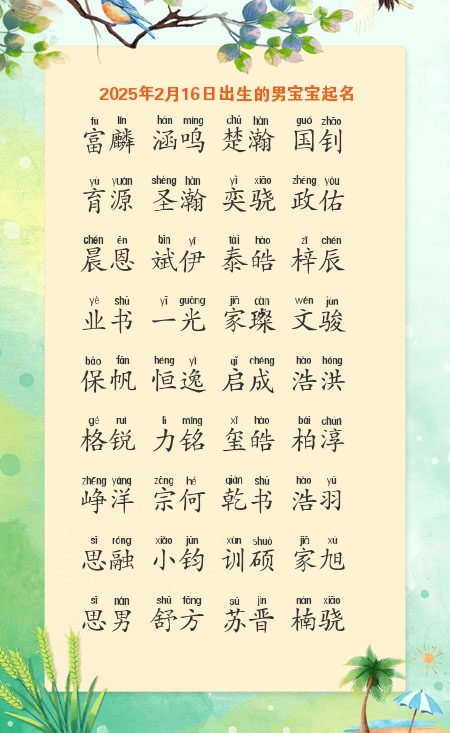 2025年2月16日出生的男宝宝起名
fù lín hán míng chǔ hàn guó zhāo
富麟 涵鸣 楚瀚 国钊
yù yuán shèng hàn yì xiāo zhèng yòu
育源 圣瀚 奕骁 政佑
chén ēn bīn yī tài hào zǐ chén
晨恩 斌伊 泰皓 梓辰
yè shū yī guāng jiā càn wén jùn
业书 一光 家璨 文骏
bǎo fān héng yì qǐ chéng hào hóng
保帆 恒逸 启成 浩洪
gé ruì lì míng xǐ hào bǎi chún
格锐 力铭 玺皓 柏淳
zhēng yáng zōng hé qián shū hào yǔ
峥洋 宗何 乾书 浩羽
sī róng xiǎo jūn xùn shuò jiā xù
思融 小钧 训硕 家旭
sī nán shū fāng sū jìn nán xiāo
思男 舒方 苏晋 楠骁